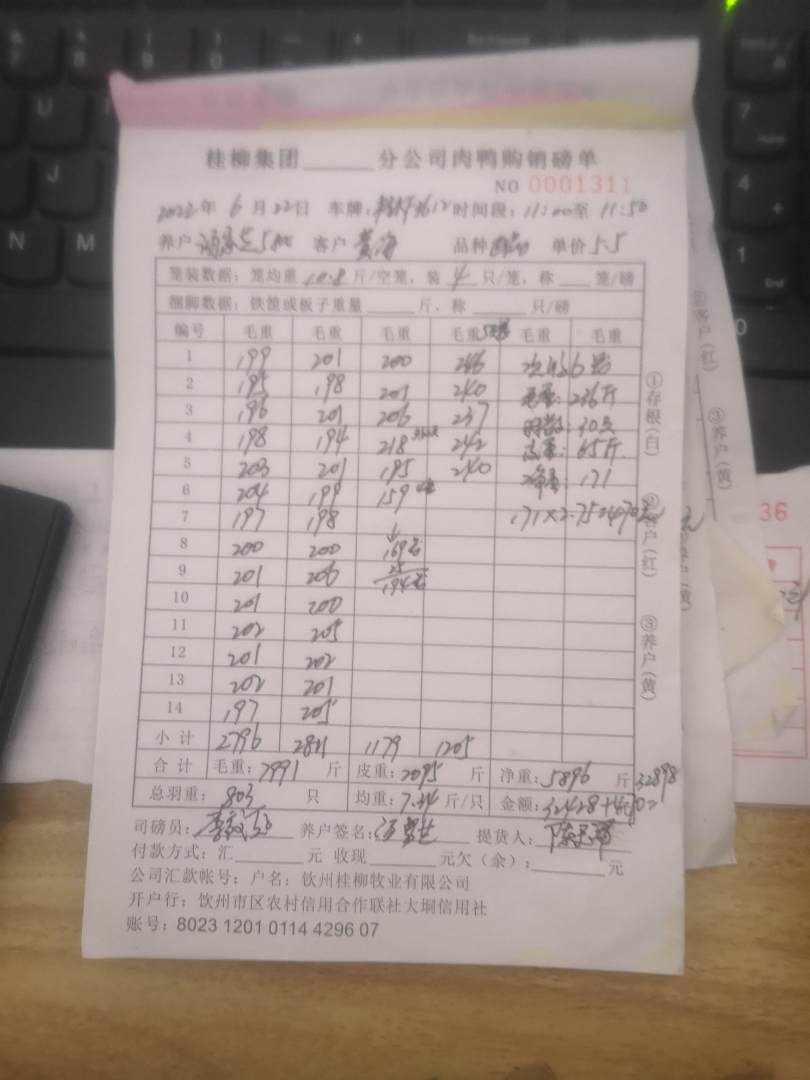 桂柳集团______分公司肉鸭购销磅单
NO 0001311
2022年 6月22日 车牌: 时间段: 11:00至 11:50
养户 客户 黄海 品种 单价 5.5
笼装数据: 笼均重 10.8 斤/空笼, 装 4 只/笼, 称____笼/磅
捆脚数据: 铁篦或板子重量______斤, 称______只/磅
编号 毛重 毛重 毛重 毛重 毛重 毛重
1 199 201 200 246 次鸭6笼
2 195 198 201 240 毛重: 236斤
3 196 201 206 237 羽数: 30只
4 198 194 218 242 皮重: 65斤
5 203 201 195 240 净重: 171
6 204 199 159
7 197 198 171×2.75=470元
8 200 200 169
9 201 206 25
194
10 201 200
11 202 205
12 201 202
13 202 201
14 197 205
小计 2796 2811 1179 1205
合计 毛重: 7991 斤 皮重: 2095 斤 净重: 5896 斤 32898
总羽重: 803 只 均重: 7.34 斤/只 金额: 32428+470=
司磅员: 养户签名: 提货人:
付款方式: 汇______元 收现______元欠(余):______元
公司汇款帐号: 户名: 钦州桂柳牧业有限公司
开户行: 钦州市区农村信用合作联社大垌信用社
账号: 8023 1201 0114 4296 07
①存根(白)
②客户(红)
③养户(黄)
②客户(红)
③养户(黄)
36